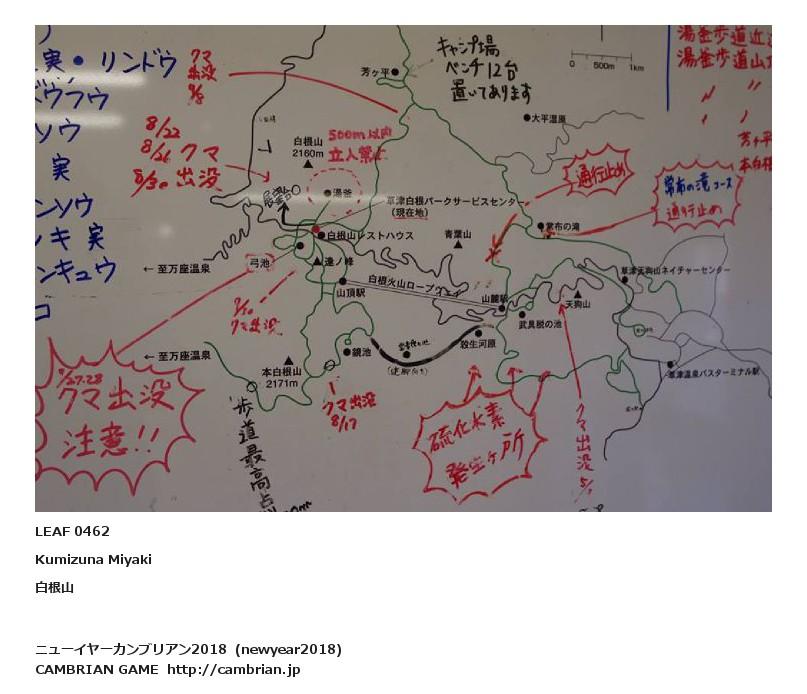 実・リンドウ
クマ
出没
9/8
キャンプ場
ベンチ12台
置いてあります
0 500m 1km
湯釜歩道近
湯釜歩道山
〃 〃
芳ヶ平
本白根
ソウ
実
ンソウ
ノキ 実
ンキュウ
コ
8/22
8/26 クマ
8/30 出没
芳ヶ平
大平湿原
白根山
2160m
500m以内
立入禁止
湯釜
草津白根パークサービスセンター
(現在地)
白根山レストハウス
通行止め
常布の滝コース
通行止め
常布の滝
青葉山
← 至万座温泉
弓池
逢ノ峰
山頂駅
白根火山ロープウェイ
山麓駅
草津天狗山ネイチャーセンター
天狗山
武具脱の池
クマ出没
← 至万座温泉
本白根山
2171m
鏡池
殺生河原
草津温泉バスターミナル駅
9/27.28
クマ出没
注意!!
歩道最高点
クマ出没
8/17
硫化水素
発生ヶ所
クマ出没
LEAF 0462
Kumizuna Miyaki
白根山
ニューイヤーカンブリアン2018 (newyear2018)
CAMBRIAN GAME http://cambrian.jp